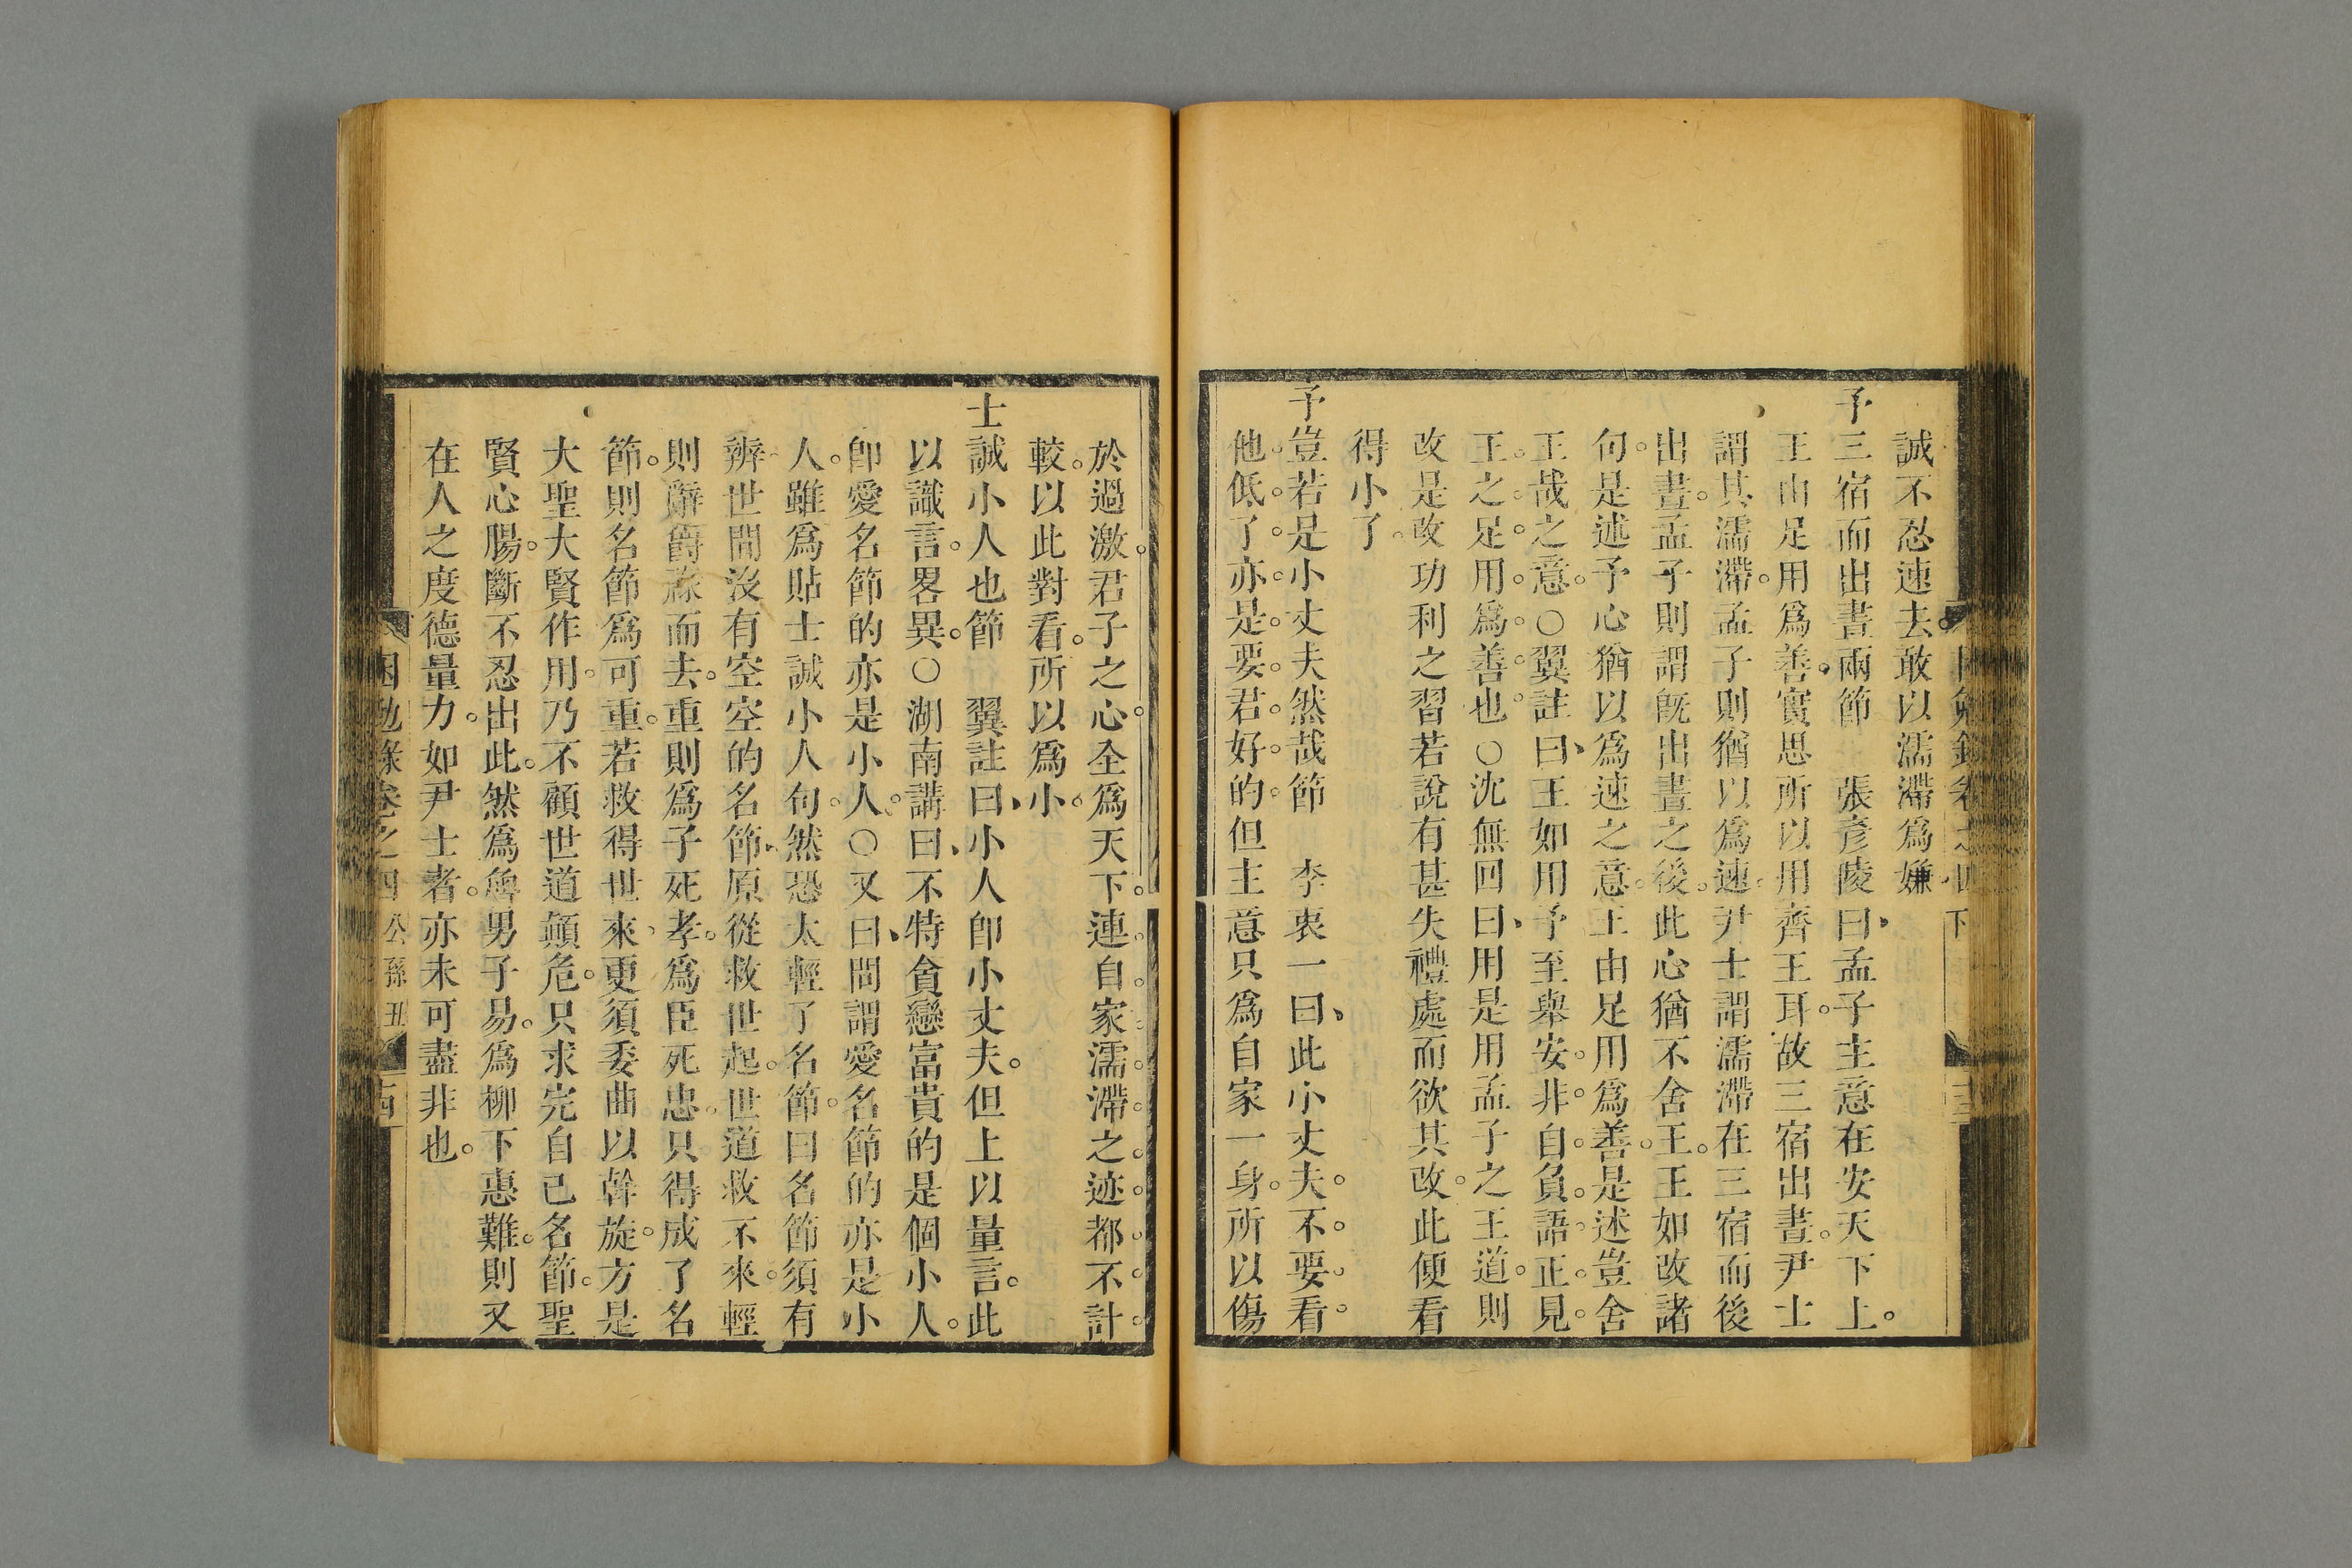 誠不忍速去敢以濡滯爲嫌
予三宿而出晝兩節　張彥陵曰孟子主意在安天下上。
王由足用爲善實思所以用齊王耳故三宿出晝。尹士
謂其濡滯。孟子則猶以爲速。尹士謂濡滯在三宿而後
出晝。孟子則謂旣出晝之後。此心猶不舍王。王如改諸
句。是述予心猶以爲速之意。王由足用爲善。是述豈舍
王哉之意。○翼註曰王如用予至舉安。非自負語正見
王之足用爲善也○沈無回曰用是用孟子之王道。則
改是改功利之習若說有甚失禮處而欲其改。此便看
得小了。
予豈若是小丈夫然哉節　李衷一曰此小丈夫。不要看
他低了亦是要君好的但主意只爲自家一身。所以傷
於過激。君子之心。全爲天下。連自家濡滯之迹都不計
較。以此對看。所以爲小。
士誠小人也節　翼註曰小人卽小丈夫。但上以量言。此
以識言。畧異。○湖南講曰不特貪戀富貴的是個小人。
卽愛名節的亦是小人。○又曰問謂愛名節的亦是小
人。雖爲貼士誠小人句。然恐太輕了名節。曰名節須有
辨世間沒有空空的名節原從救世起。世道救不來。輕
則辭爵祿而去。重則爲子死孝。爲臣死忠。只得成了名
節。則名節爲可重。若救得世來更須委曲以斡旋。方是
大聖大賢作用。乃不顧世道顛危。只求完自己名節。聖
賢心腸。斷不忍出此。然爲魯男子易。爲柳下惠難。則又
在人之度德量力。如尹士者。亦未可盡非也。
困勉錄卷之四 公孫丑